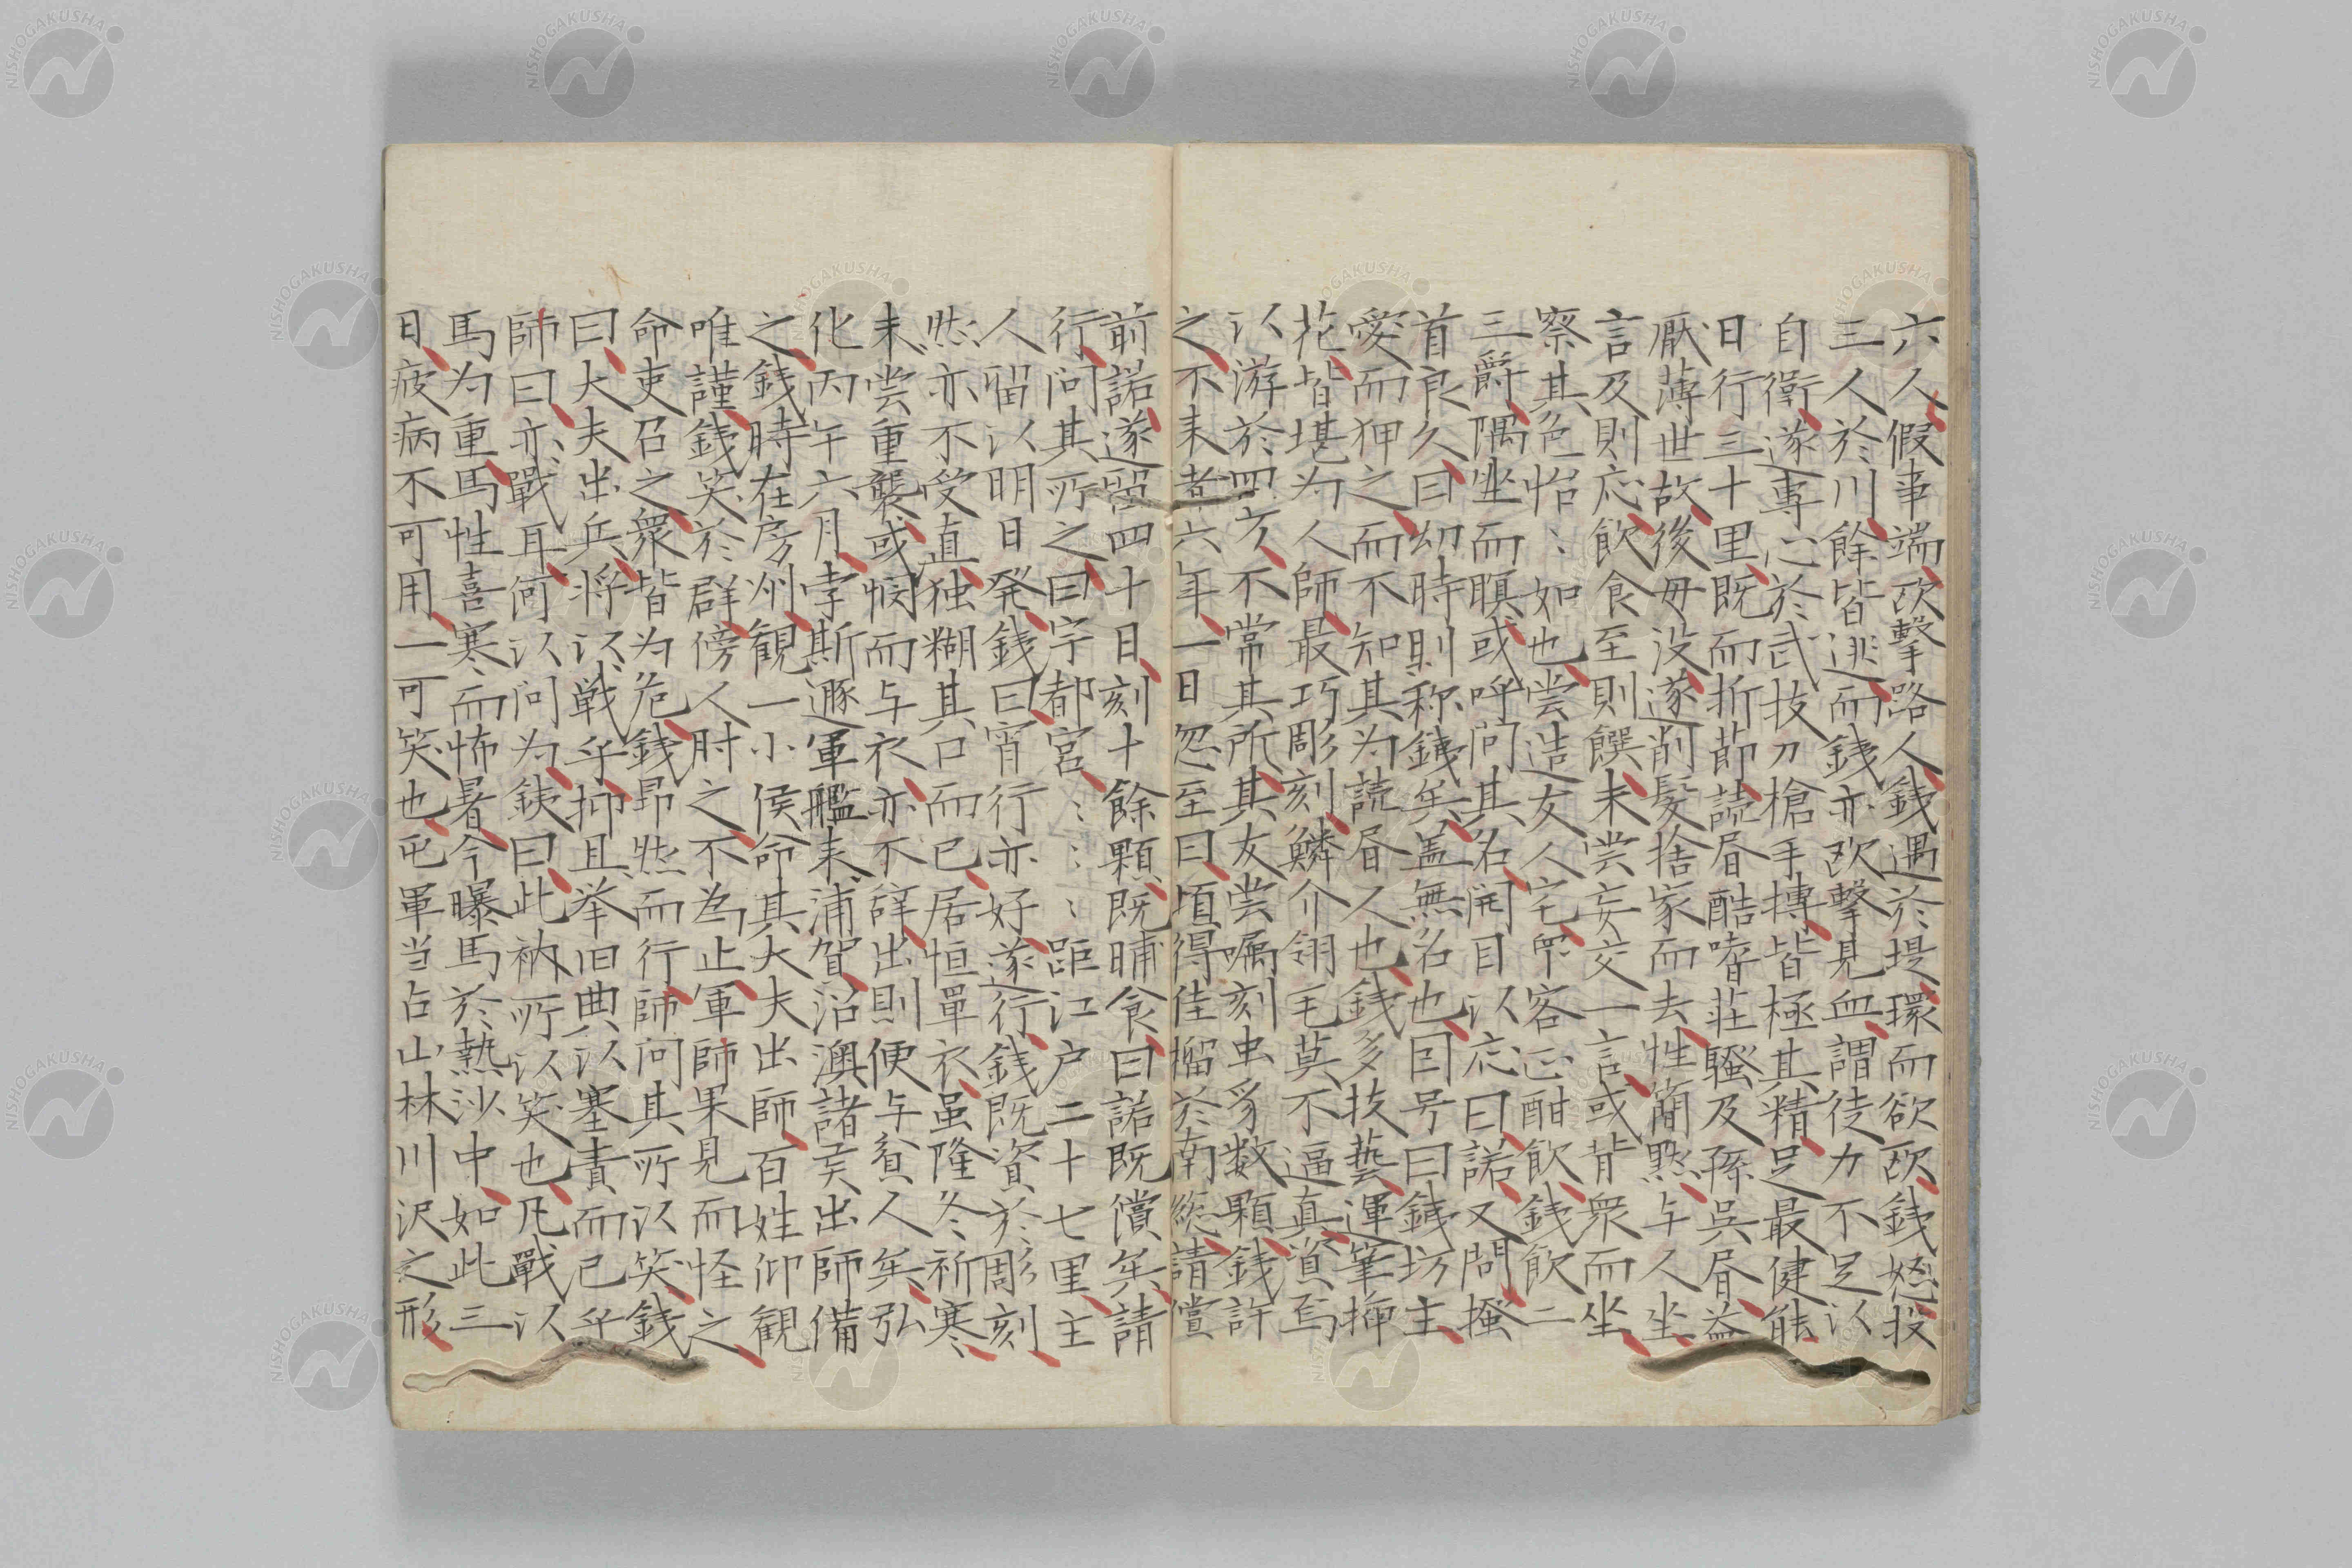 六人假事端欧撃路人銕遇於堤環而欲欧銕怒投
三人於川餘皆逃而銕亦欧撃見血謂徒力不足以
自衛遂專心於武技刀槍手搏皆極其精足最健能
日行三十里既而折節読㫺酷嗜莊騷及孫呉㫺益
厭薄世故後毋没遂削髪捨家而去性簡黙与人坐
言及則応飲食至則饌未嘗妄交一言或背衆而坐
察其色怡〻如也嘗造友人宅衆客正酣飲銕飲二
三爵隅坐而瞑或呼问其名開目以応曰諾又問搔
首良久曰幼時則称銕矣盖無名也因号曰銕坊主
愛而狎之而不知其为読㫺人也銕多技藝運筆揮
花皆堪为人師最巧彫刻鱗介翎毛莫不逼真資焉
以游於四方不常其所其友嘗嘱刻虫豸数顆銕許
之不来者六年一日忽至曰頃得佳榴於南総請償
前諾遂留四十日刻十餘顆既晡食曰諾既償矣請
行问其所之曰宇都宮〻〻〻距江户二十七里主
人留以明日発銕曰宵行亦好遂行銕既資於彫刻
然亦不受直独糊其口而已居恒單衣虽隆冬祈寒
未嘗重襲或憫而与衣亦不辞出則便与貧人矣弘
化丙午六月孛斯遯軍艦来浦賀沿澳諸矦出師備
之銕時在房州観一小侯命其大夫出師百姓仰観
唯謹銕笑於群傍人肘之不為止軍師果見而怪之
命吏召之衆皆为危銕昂然而行師问其所以笑銕
曰大夫出兵将以戦乎抑且挙旧典以塞責而已乎
師曰亦戰耳何以问为銕曰此衲所以笑也凡戰以
馬为重馬性喜寒而怖暑今曝馬於熱沙中如此三
日疲病不可用一可笑也屯軍当占山林川沢之形